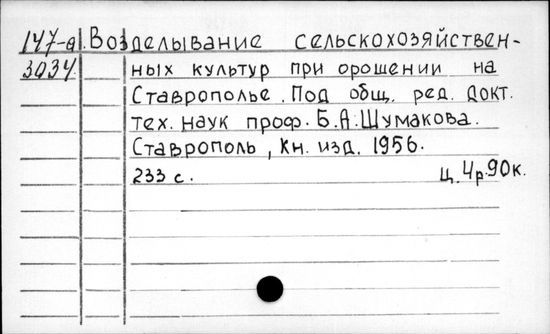 147-а. Возделывание сельскохозяйствен-
3034 ных культур при орошении на
Ставрополье. Под общ. ред. докт.
тех. наук проф. Б.А.Шумакова.
Ставрополь, Кн. изд. 1956.
233 с. Ц. 4р.90к.